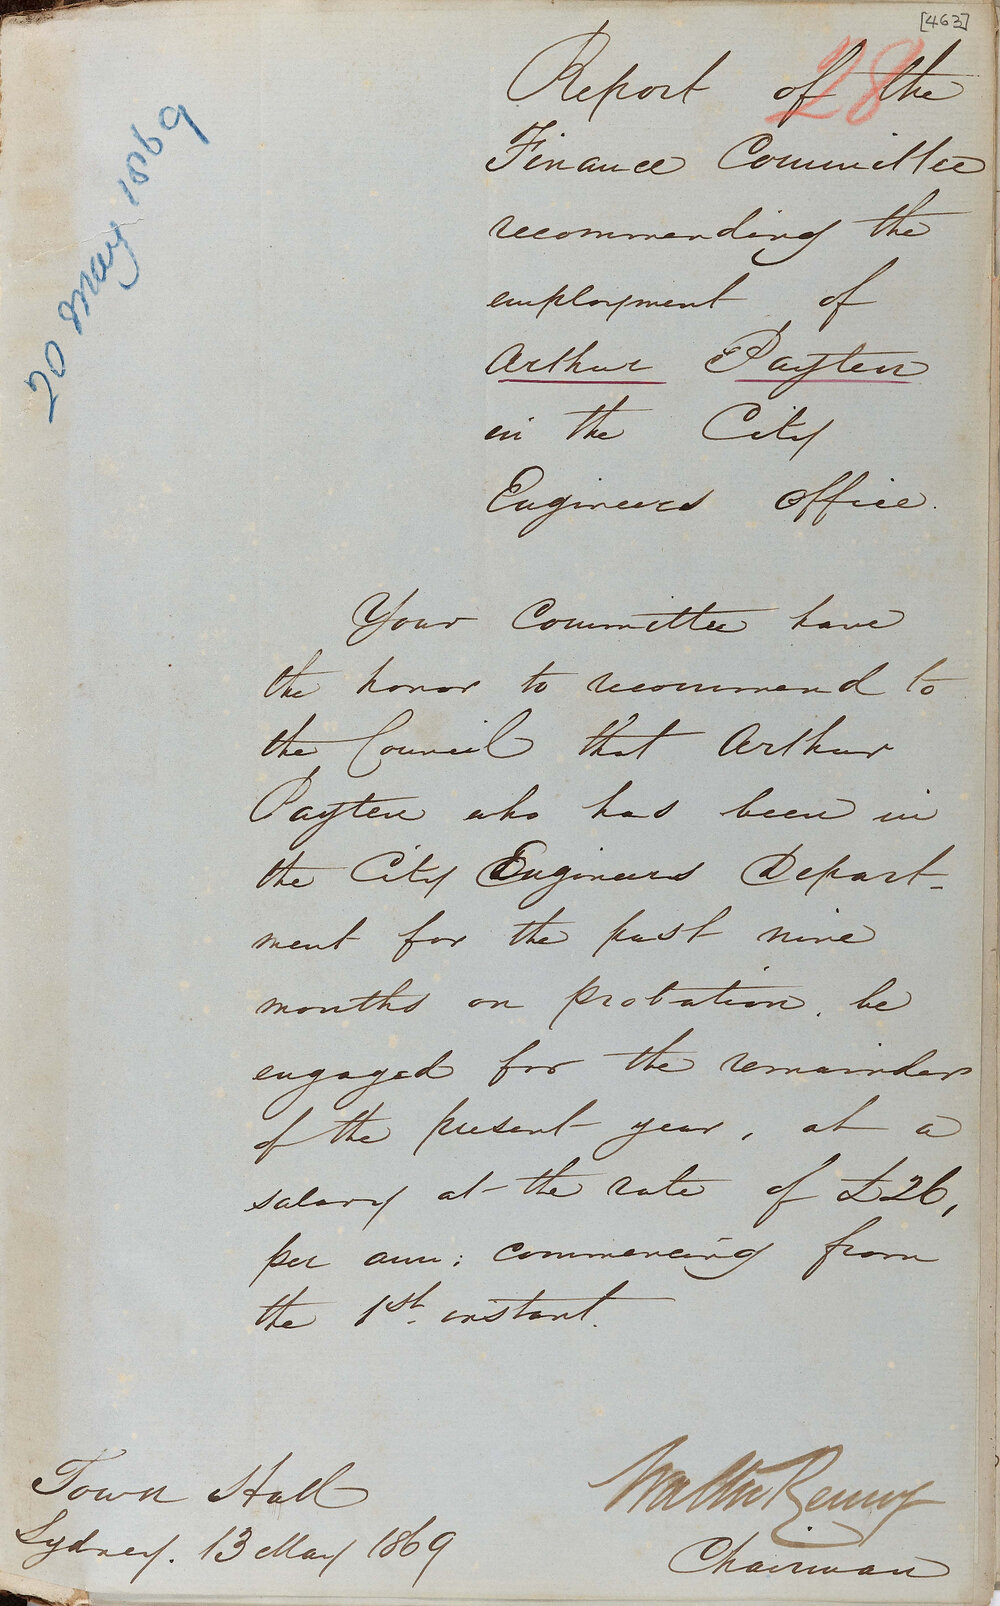 [463]
28
20 May 1869
Report of the
Finance Committee
recommending the
employment of
Arthur Payten
in the City
Engineers office.
Your Committee have
the honor to recommend to
the Council that Arthur
Payten who has been in
the City Engineers Depart-
ment for the past nine
months on probation, be
engaged for the remainder
of the present year, at a
salary at the rate of £26,
per ann: commencing from
the 1st. instant.
Walter Renny
Chairman
Town Hall
Sydney. 13 May 1869